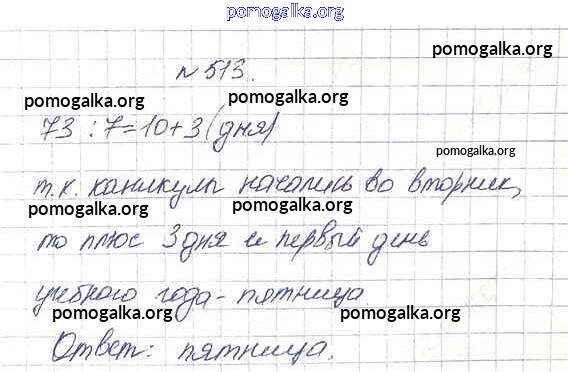 pomogalka.org
pomogalka.org
№ 513.
pomogalka.org pomogalka.org
73 : 7 = 10 + 3 (дня)
pomogalka.org
т.к. каникулы начались во вторник,
pomogalka.org pomogalka.org
то плюс 3 дня и первый день
учебного года - пятница.
pomogalka.org pomogalka.org
Ответ: пятница.